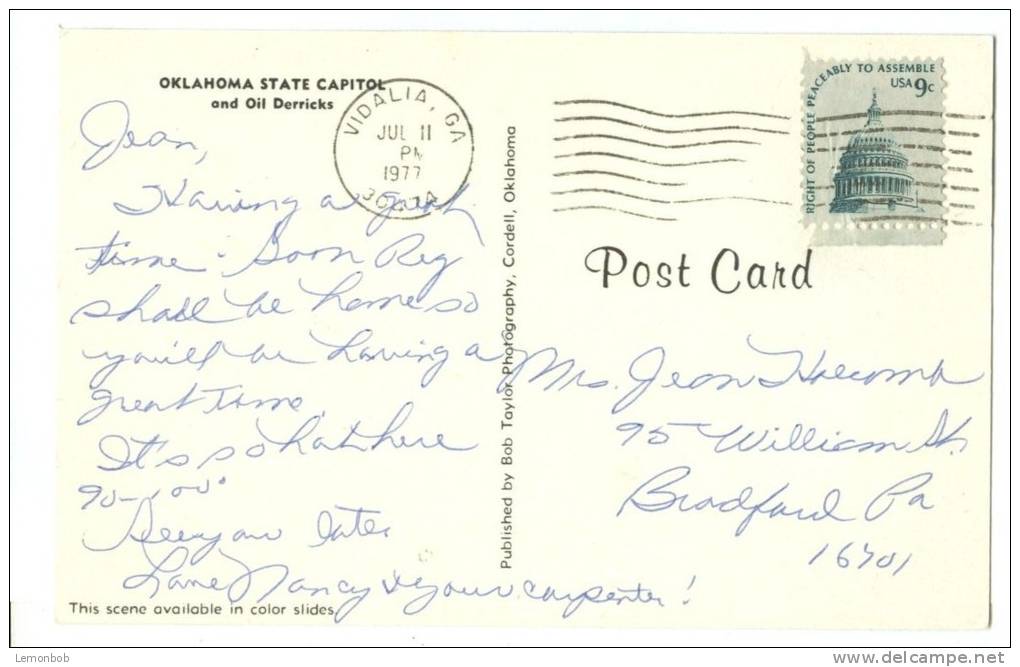 OKLAHOMA STATE CAPITOL
and Oil Derricks
VIDALIA, GA
JUL 11
PM
1977
RIGHT OF PEOPLE PEACEABLY TO ASSEMBLE
USA 9c
Post Card
Jean,
Having a good
time - Soon Reg
shall be home so
you'll be having a
great time.
It's so hot here
90-100°
See you later
Love Nancy & your carpenter!
Published by Bob Taylor Photography, Cordell, Oklahoma
Mrs. Jean Holcomb
95 William St.
Bradford Pa
16701
This scene available in color slides.
Lemonbob
www.delcampe.net